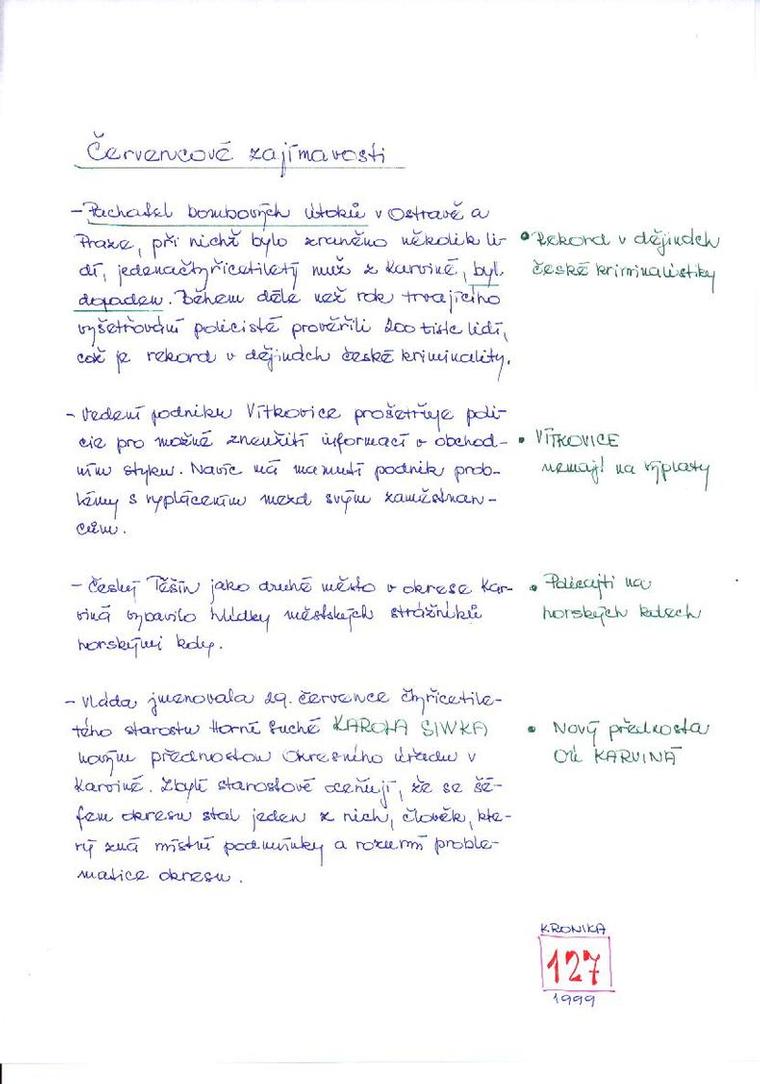 Červencové zajímavosti
– Pachatel bombových útoků v Ostravě a
Praze, při nichž bylo zraněno několik li-
dí, jedenačtyřicetiletý muž z Karviné, byl
dopaden. Během déle než rok trvajícího
vyšetřování policisté prověřili 200 tisíc lidí,
což je rekord v dějinách české kriminality.
• Rekord v dějinách
české kriminalistiky
– Vedení podniku Vítkovice prošetřuje poli-
cie pro možné zneužití informací v obchod-
ním styku. Navíc má mamutí podnik prob-
lémy s vyplácením mezd svým zaměstnan-
cům.
• VÍTKOVICE
nemají na výplaty
– Český Těšín jako druhé město v okrese Kar-
viná vybavilo hlídky městských strážníků
horskými koly.
• Policajti na
horských kolech
– Vláda jmenovala 29. července čtyřicetile-
tého starostu Horní Suché KAROLA SIWKA
novým přednostou Okresního úřadu v
Karviné. Zbylí starostové oceňují, že se šé-
fem okresu stal jeden z nich, člověk, kte-
rý zná místní podmínky a rozumí proble-
matice okresu.
• Nový přednosta
OÚ KARVINÁ
KRONIKA
127
1999